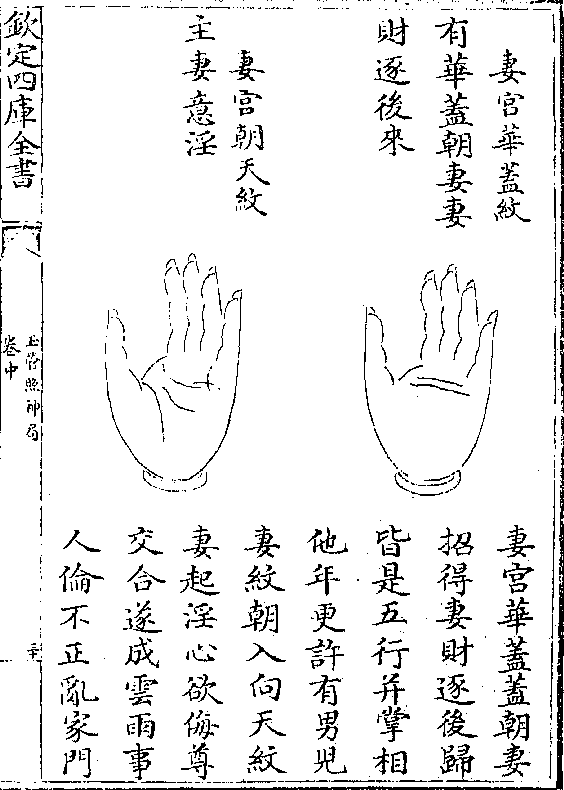 妻宮華蓋紋
有華蓋朝妻妻
財逐後來
妻宮華蓋蓋朝妻
招得妻財逐後歸
皆是五行并掌相
他年更許有男兒
妻宮朝天紋
主妻意淫
妻紋朝入向天紋
妻起淫心欲侮尊
交合遂成雲雨事
人倫不正亂家門
欽定四庫全書
玉管照神局
卷中